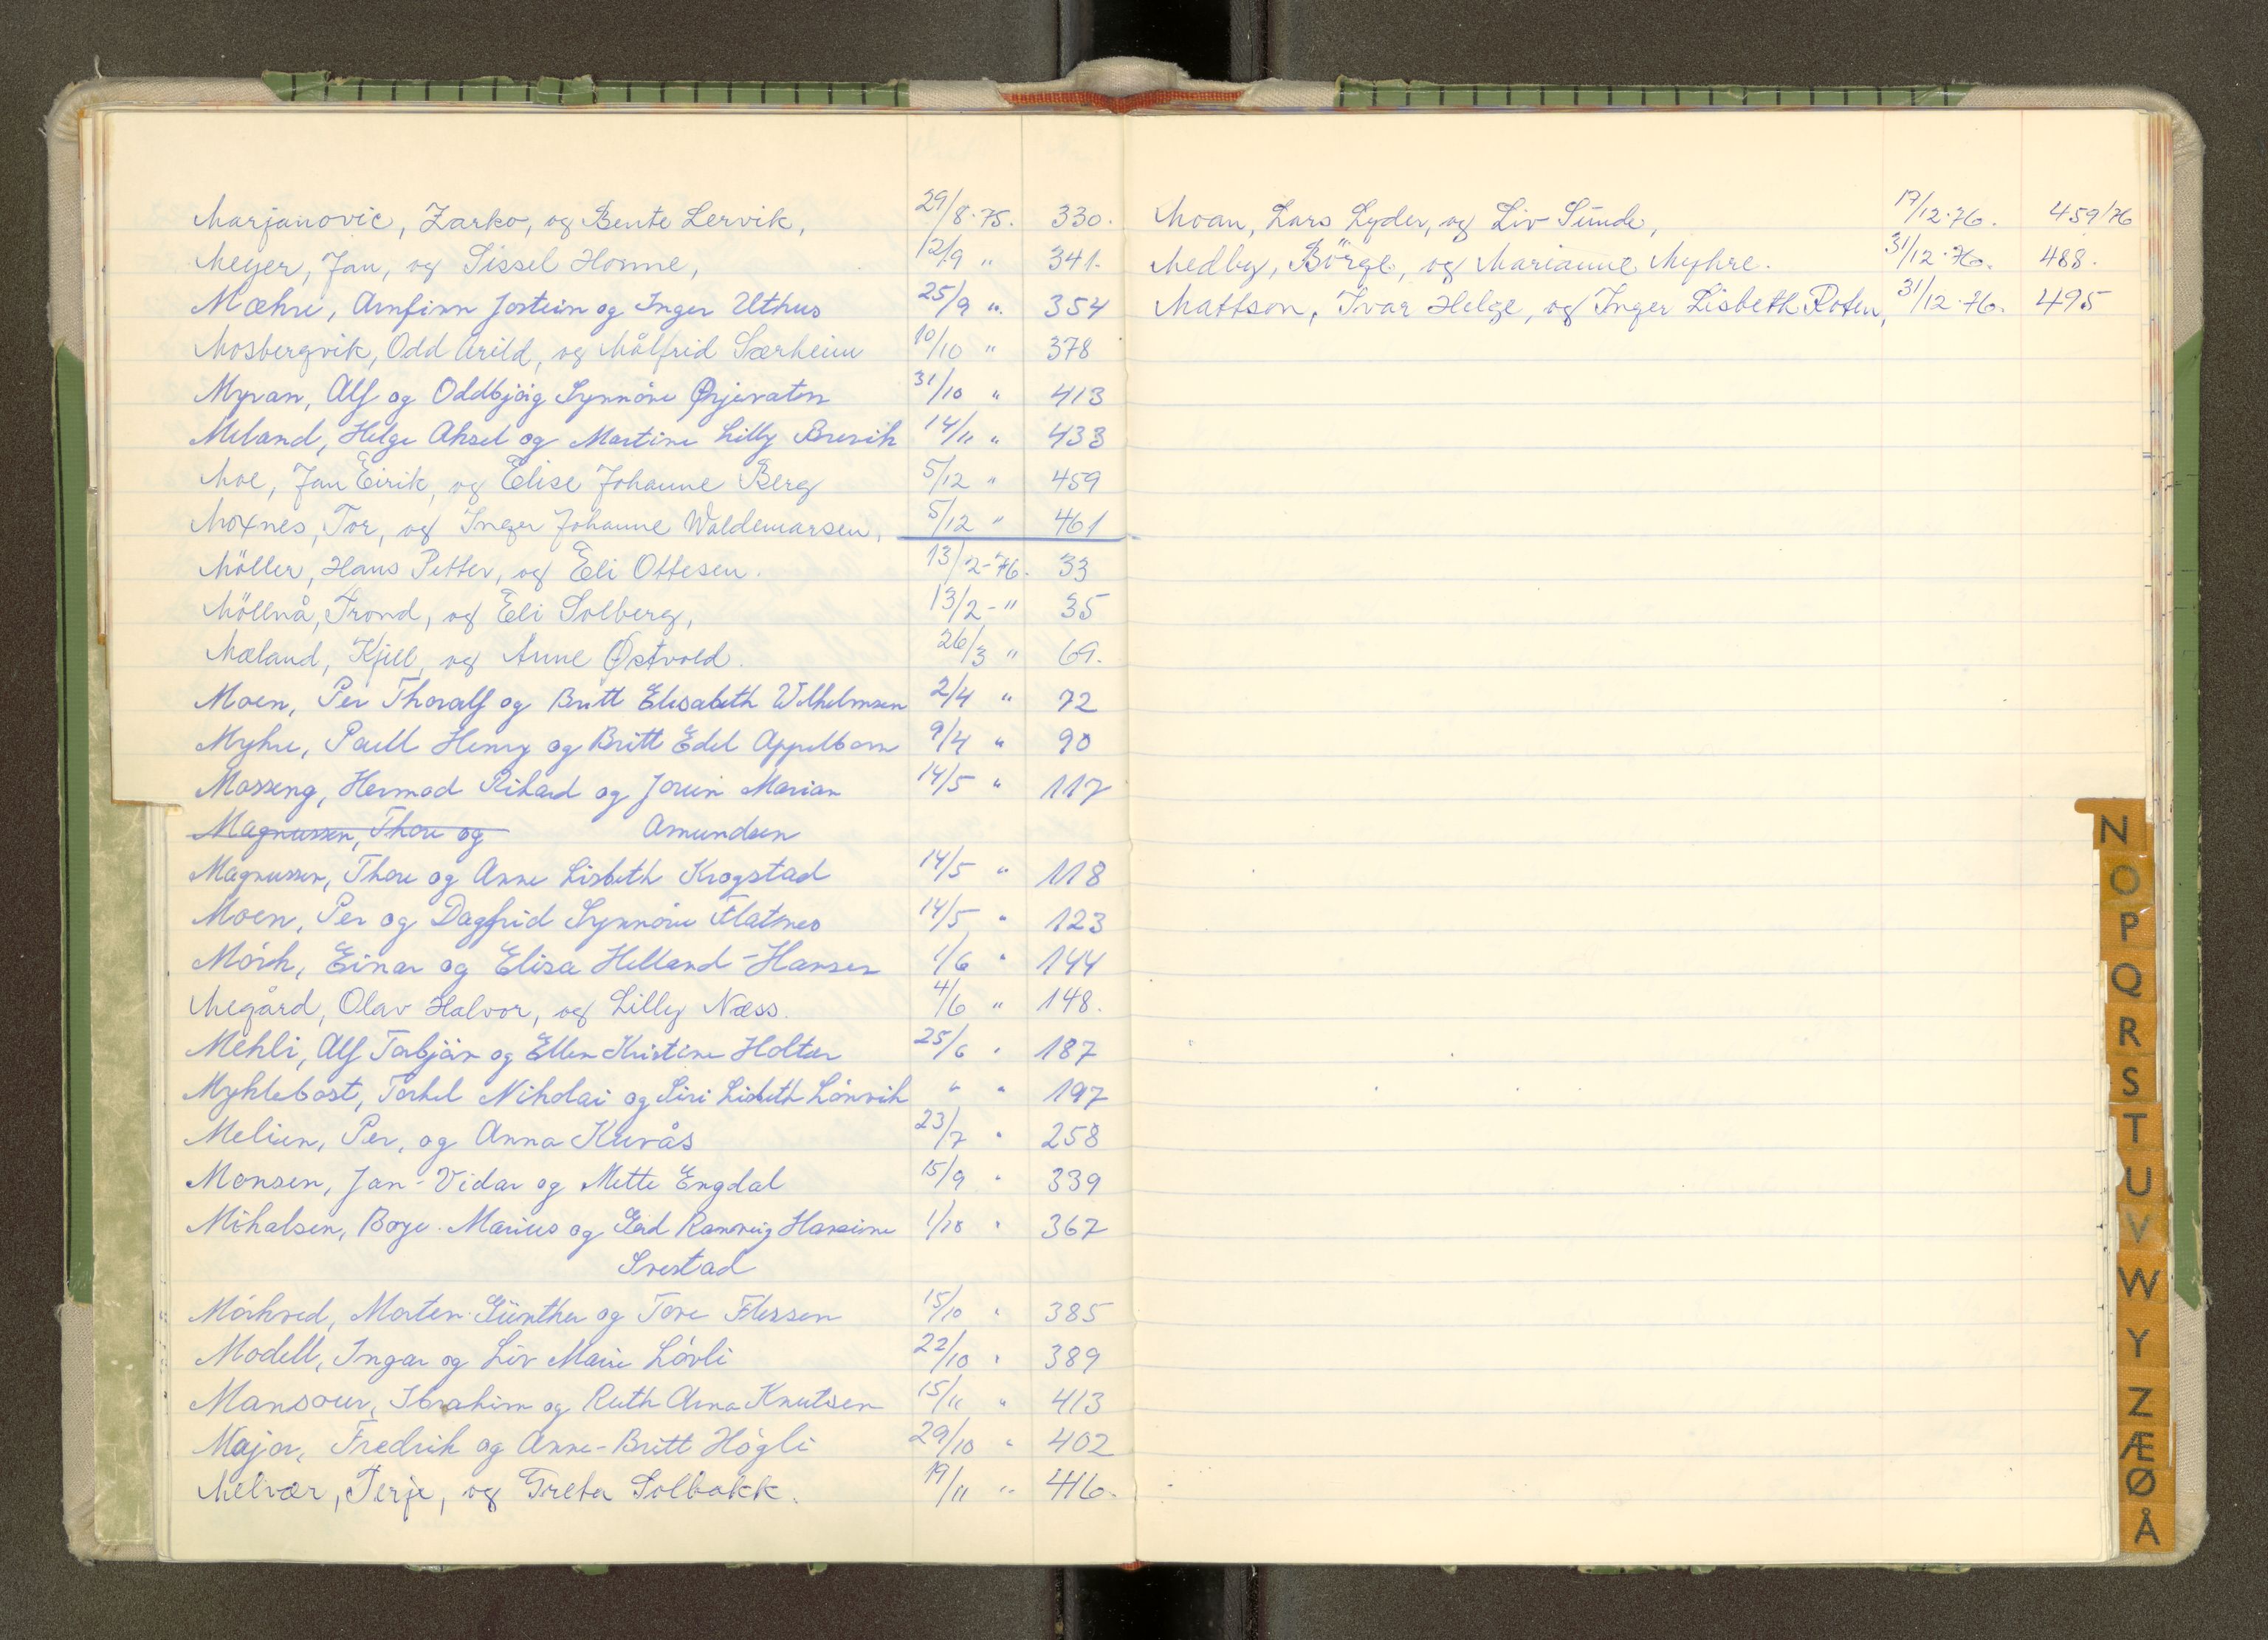 Marjanovic, Zarko, og Bente Lervik, 29/8-75. 330.
Meyer, Jan, og Sissel Honne, 12/9 " 341.
Mæhre, Arnfinn Jostein og Inger Uthus 25/9 " 354
Mosbergvik, Odd Arild, og Målfrid Særheim 10/10 " 378
Myran, Alf og Oddbjørg Synnøve 31/10 " 413
Meland, Helge Aksel og Martine Lilly Brevik 14/11 " 433
Moe, Jan Eirik, og Elise Johanne Berg 5/12 " 459
Moxnes, Tor, og Inger Johanne Waldemarsen, 5/12 " 461
Möller, Hans Petter, og Eli Ottesen. 13/2-76. 33
Möllnå, Trond, og Eli Solberg, 13/2-" 35
Mæland, Kjell, og Anne Østvold. 26/3 " 69.
Moen, Per Thoralf og Britt Elisabeth Wilhelmsen 2/4 " 72
Myhre, Paul Henry og Britt Edel Appelbom 9/4 " 90
Mosseng, Hermod Rikard og Jorun Marian 14/5 " 117
Magnussen, Thore og Amundsen
Magnussen, Thore og Anne Lisbeth Krogstad 14/5 " 118
Moen, Per og Dagfrid Synnøve Flatnes 14/5 " 123
Mörk, Einar og Elisa Helland-Hansen 1/6 " 144
Megård, Olav Halvor, og Lilly Næss. 4/6 " 148.
Mehli, Alf Torbjörn og Ellen Kristine Holter 25/6 " 187
Myklebost, Torkel Nikolai og Siri Lisbeth Lönvik " " 197
Melien, Per, og Anna Kuvås 23/7 " 258
Monsen, Jan-Vidar og Mette Engdal 15/9 " 339
Mikalsen, Boye Marius og Gerd Rannveig Hansine 1/10 " 367
Svestad
Mörkved, Morten Günther og Tove Flessen 15/10 " 385
Modell, Ingar og Liv Marie Lövli 22/10 " 389
Mansour, Ibrahim og Ruth Arna Knutsen 15/11 " 413
Major, Fredrik og Anne-Britt Högli 29/10 " 402
Melvær, Terje, og Greta Solbakk. 19/11 " 416.
Moan, Lars Lyder, og Liv Sunde, 17/12-76. 459/76
Medby, Börge, og Marianne Myhre. 31/12-76. 488.
Mattson, Ivar Helge, og Inger Lisbeth Roten, 31/12-76. 495
N
O
P
Q
R
S
T
U
V
W
Y
Z
Æ
Ø
Å